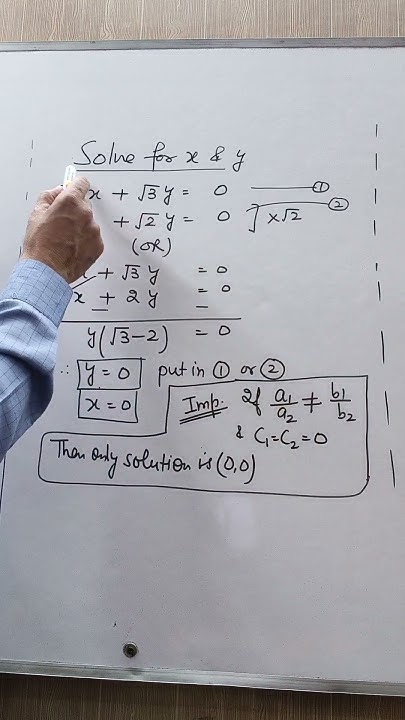 Solve for x & y
x + √3 y = 0 ①
+ √2 y = 0 ② ] x√2
(OR)
x + √3 y = 0
x + 2 y = 0
y(√3-2) = 0
∴ y = 0 put in ① or ②
x = 0
Imp. If a1/a2 ≠ b1/b2
& C1=C2=0
Then only solution is (0,0)